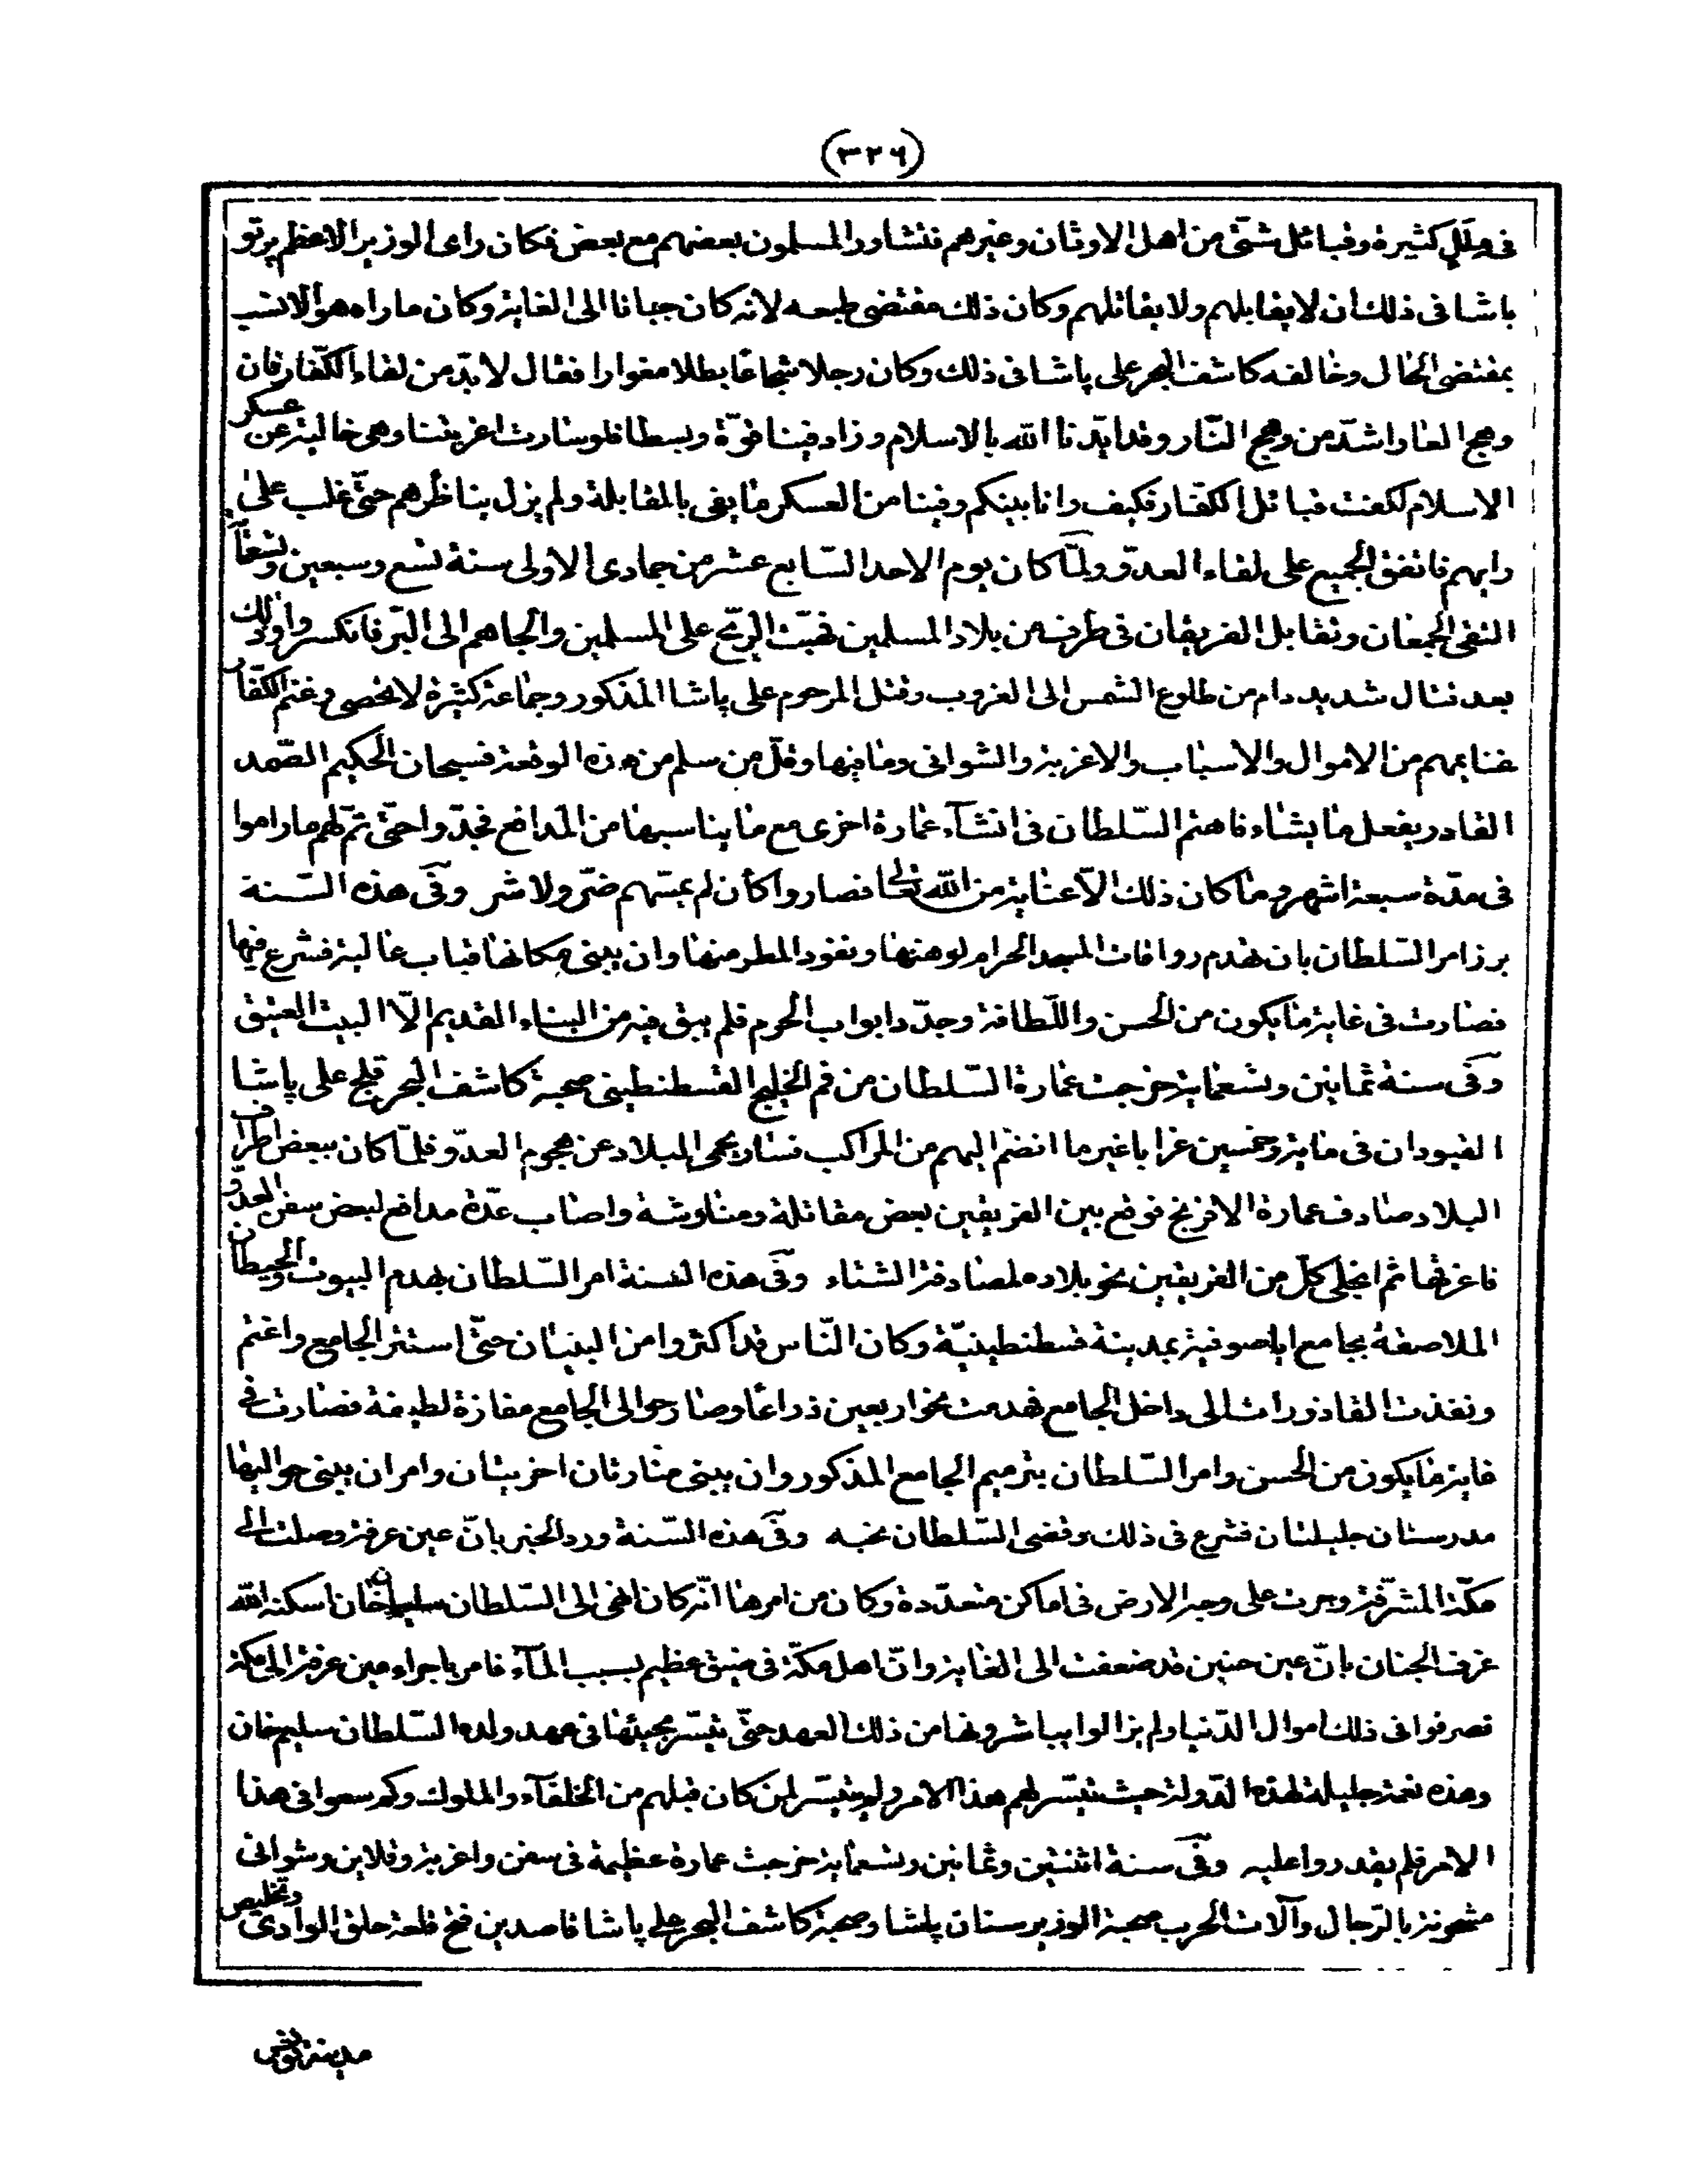 (٣٢٦)
فى ملل كثيرة وقبائل شتّى من اهل الاوثان وغيرهم فتشاور المسلمون بعضهم مع بعض فكان راى الوزير الاعظم پرتو
باشا فى ذلك ان لا يقابلهم ولا يقاتلهم وكان ذلك مقتضى طبعه لانه كان جبانا الى الغاية وكان ما راه هو الانسب
بمقتضى الحال وخالفه كاشف البحر على پاشا فى ذلك وكان رجلا شجاعا بطلا مغوارا فقال لا بدّ من لقاء الكفّار فان
وهج العار اشدّ من وهج النّار وقد ايّدنا الله بالاسلام وزاد فينا قوّة وبسطا فلو سارت اغربتنا وهى خالية عن عسكر
الاسلام لكفت قبائل الكفّار فكيف وانا بينكم وفينا من العسكر ما يفى بالمقابلة ولم يزل يناظرهم حتّى غلب على
رايهم فاتفق الجميع على لقاء العدوّ ولمّا كان يوم الاحد السّابع عشر من جمادى الاولى سنة تسع وسبعين وتسعمائة
التقى الجمعان وتقابل الفريقان فى طرف من بلاد المسلمين فهبّت الرّيح على المسلمين والجاهم الى البّر فانكسروا وذلك
بعد قتال شديد دام من طلوع الشمس الى الغروب وقتل المرحوم على پاشا المذكور وجماعة كثيرة لا تحصى وغنم الكفّار
غنايمهم من الاموال والاسباب والاغربة والشوانى وما فيها وقلّ من سلم من هذه الوقعة فسبحان الحكيم الصّمد
القادر يفعل ما يشاء فاهتم السّلطان فى انشآء عمارة اخرى مع ما يناسبها من المدافع فجدّوا حتّى تمّ لهم ما راموا
فى مدّة سبعة اشهر وما كان ذلك الّا عناية من الله تعالى فصاروا كأن لم يمسّهم ضّر ولا شر وفى هذه السّنة
برز امر السّلطان بان تهدم رواقات المسجد الحرام لوهنها ونفود المطر منها وان يبنى مكانها قباب عالية فشرع فيها
فصارت فى غاية ما يكون من الحسن واللّطافة وجدّدا ابواب الحرم فلم يبق فيه من البناء القديم الّا البيت العتيق
وفى سنة ثمانين وتسعماية خرجت عمارة السّلطان من فم الخليج القسطنطينى صحبة كاشف البحر قلج على پاشا
القبودان فى ماية وخمسين غرابا غير ما انضمّ اليهم من المراكب فسار يحمى البلاد عن هجوم العدوّ فلمّا كان ببعض اطراف
البلاد صادف عمارة الافرنج فوقع بين الفريقين بعض مقاتلة ومناوشة واصاب عدّة مدافع لبعض سفن العدوّ
فاغرقها ثم انجلى كلّ من الفريقين نحو بلاده لمصادفة الشتاء وفى هذه السّنة امر السّلطان بهدم البيوت والحيطان
الملاصقة بجامع اياصوفية بمدينة قسطنطينيّة وكان النّاس قد اكثروا من البنيان حتّى استتر الجامع واغتم
ونفذت القاذورات الى داخل الجامع فهدمت نحو اربعين ذراعا وصار حوالى الجامع مفازة لطيفة فصارت فى
غاية ما يكون من الحسن وامر السّلطان بترميم الجامع المذكور وان يبنى منارتان اخريتان وامر ان يبنى حواليها
مدرستان جليلتان فشرع فى ذلك وقضى السّلطان نحبه وفى هذه السّنة ورد الخبر بانّ عين عرفة وصلت الى
مكّة المشرّفة وجرت على وجه الارض فى اماكن متعدّدة وكان من امرها انّه كان انهى الى السّلطان سليمان خان اسكنه الله
غرف الجنان بانّ عين حنين قد ضعفت الى الغاية وانّ اهل مكّة فى ضيق عظيم بسبب المآء فامر باجراء عين عرفة الى مكة
فصرفوا فى ذلك اموال الدّنيا ولم يزالوا يباشرونها من ذلك العهد حتّى تيسّر مجيئها فى عهد ولده السّلطان سليم خان
وهذه نعمة جليلة لهذه الدّولة حيث تيسّر لهم هذا الامر ولم يتيسّر لمن كان قبلهم من الخلفآء والملوك وكم سعوا فى هذا
الامر فلم يقدروا عليه وفى سنة اثنتين وثمانين وتسعماية خرجت عمارة عظيمة فى سفن واغربة وقلاين وشوانى
مشحونة بالرّجال وآلات الحرب صحبة الوزير سنان پاشا وصحبة كاشف البحر على پاشا قاصدين فتح قلعة حلق الوادى وتخليص
مدينة تونس